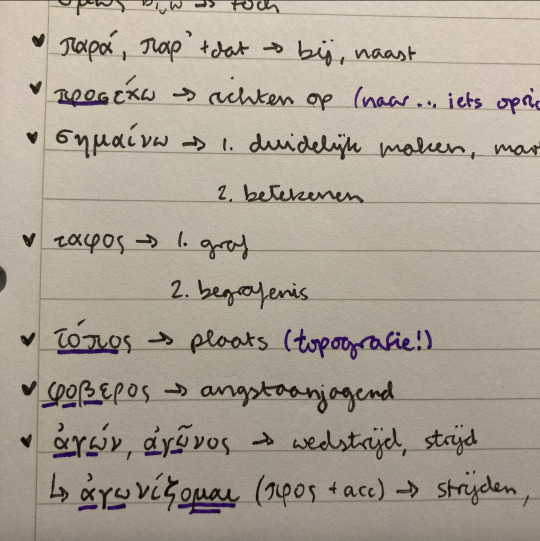 ὅμως → toch
✓ παρά, παρ' + dat → bij, naast
✓ προσέχω → richten op (naar... iets
✓ σημαίνω → 1. duidelijk maken,
2. betekenen
✓ ταφος → 1. graf
2. begrafenis
✓ τόπος → plaats (topografie!)
✓ φοβερος → angstaanjagend
✓ ἀγών, ἀγῶνος → wedstrijd, strijd
↳ ἀγωνίζομαι (προς + acc) → strijden,